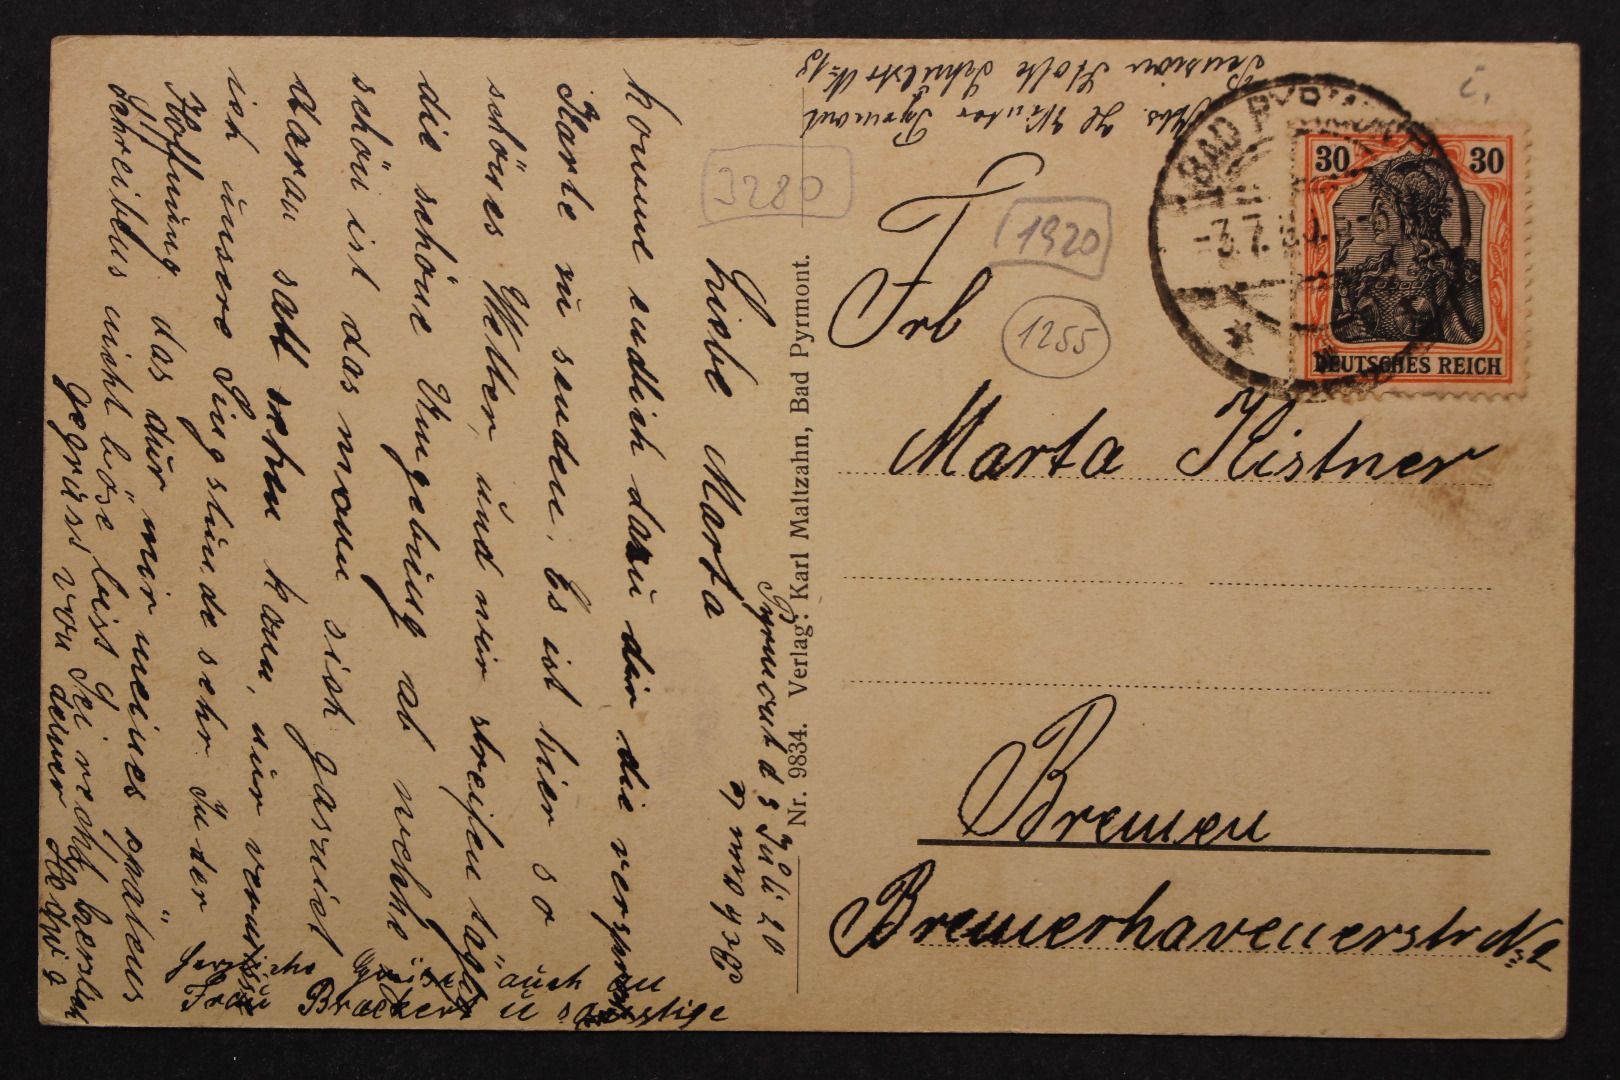 Pyrmont d 3 Juli 20
Liebe Marta
komme endlich dazu dir die versproch
Karte zu senden. Es ist hier so
schönes Wetter, und wir streifen täglich
die schöne Umgebung ab welche
schön ist das mann sich garnicht
daran satt sehen kann, nur vermiss
ich unsere Singstunde sehr. In der
Hoffnung das dur mir meines späten
Schreibens nicht böse bist Sei recht herzlich
gegrüss von deiner Hedwig
Herzliche Grüsse auch an
Frau Brackers u sonstige
Bekannte
Abs. H Winter Pyrmont
Pension Stolte Schulstr №13
3280
1920
1255
i.
BAD PYRMONT
-3.7.20.
30 30
DEUTSCHES REICH
Nr. 9834. Verlag: Karl Maltzahn, Bad Pyrmont.
Frl
Marta Kistner
Bremen
Bremerhavenerstr № 2